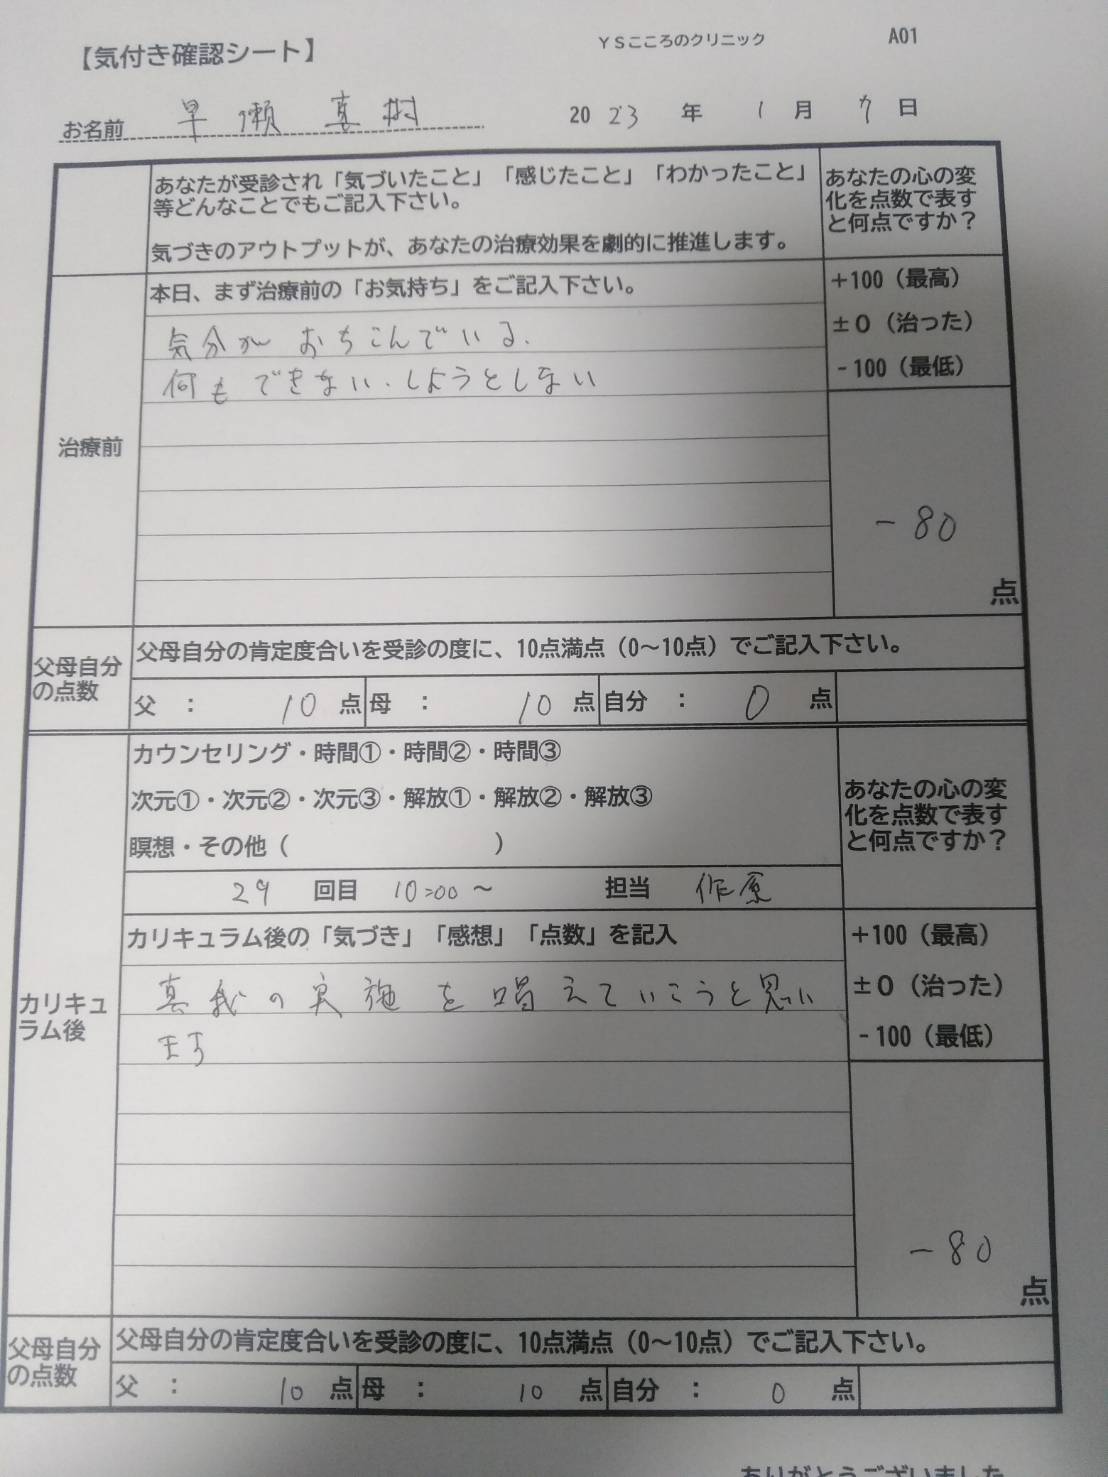 【気付き確認シート】
YSこころのクリニック
A01
お名前 早瀬 真樹
2023年 1月 7日
あなたが受診され「気づいたこと」「感じたこと」「わかったこと」
等どんなことでもご記入下さい。
気づきのアウトプットが、あなたの治療効果を劇的に推進します。
あなたの心の変
化を点数で表す
と何点ですか？
治療前
本日、まず治療前の「お気持ち」をご記入下さい。
気分が おちこんでいる.
何もできない.しようとしない
+100（最高）
±0（治った）
-100（最低）
-80
点
父母自分
の点数
父母自分の肯定度合いを受診の度に、10点満点（0～10点）でご記入下さい。
父 ： 10 点 母 ： 10 点 自分 ： 0 点
カウンセリング・時間①・時間②・時間③
次元①・次元②・次元③・解放①・解放②・解放③
瞑想・その他（ ）
あなたの心の変
化を点数で表す
と何点ですか？
29 回目 10:00 ～ 担当 作原
カリキュ
ラム後
カリキュラム後の「気づき」「感想」「点数」を記入
真我の実施を唱えていこうと思い
ます
+100（最高）
±0（治った）
-100（最低）
-80
点
父母自分
の点数
父母自分の肯定度合いを受診の度に、10点満点（0～10点）でご記入下さい。
父 ： 10 点 母 ： 10 点 自分 ： 0 点
ありがとうございました